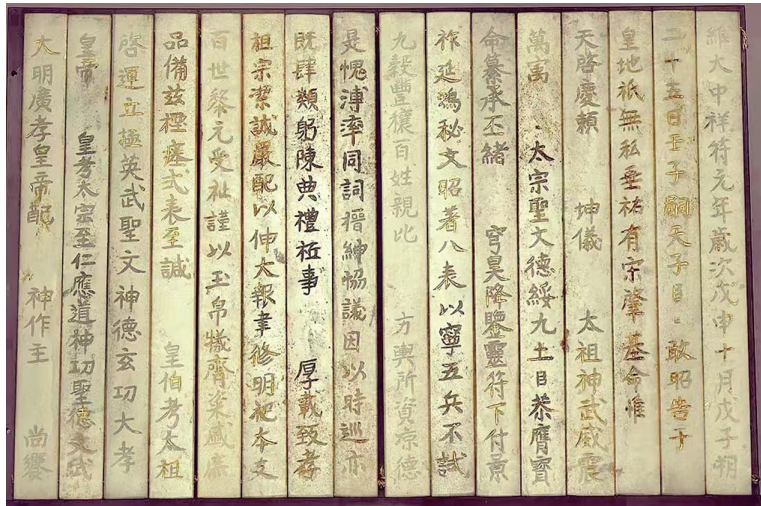 維大中祥符元年歲次戊申十月戊子朔
二十五日壬子嗣天子臣敢昭告于
皇地祇無私垂祐有宋肇基命惟
天啓慶賴 坤儀 太祖神武威震
萬寓 太宗聖文德綏九土臣恭膺寶
命纂承丕緒 穹昊降鑒靈符下付景
祚延鴻秘文昭著八表以寧五兵不試
九穀豐穰百姓親比 方輿所資涼德
是愧溥率同詞搢紳協議因以時巡亦
既肆類躬陳典禮祗事 厚載致孝
祖宗潔誠嚴配以伸大報聿修明祀本支
百世黎元受祉謹以玉帛犧齊粢盛庶
品備茲禋瘞式表至誠 皇伯考太祖
啓運立極英武聖文神德玄功大孝
皇帝 皇考太宗至仁應道神功聖德文武
大明廣孝皇帝配 神作主 尚饗